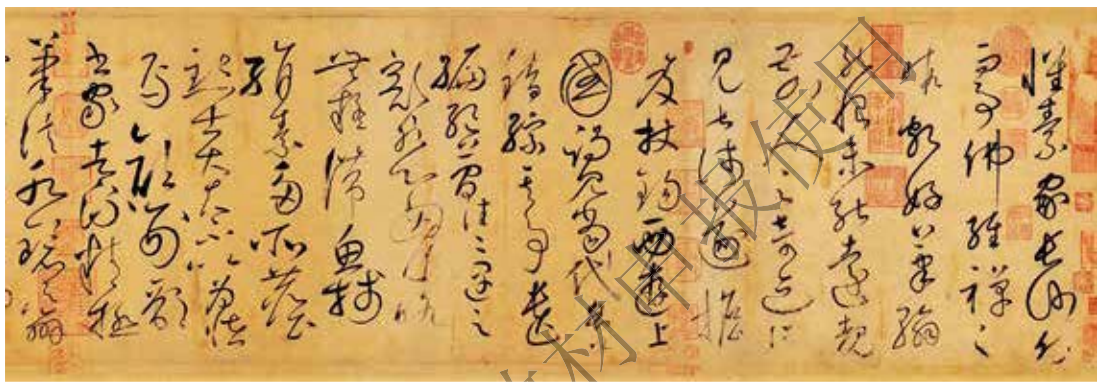 懷素家長沙幼而
事佛經禪之
暇頗好筆翰
然恨未能遠覩
前人之奇迹所
見甚淺遂擔
笈杖錫西遊上
國謁見當代名公
錯綜其事遺
編絕簡往往遇之
豁然心胸略
無疑滯魚牋
絹素多所塵
點士大夫不以為怪
焉顏刑部
書家者流精極
筆法水鏡之辨
材申报使用